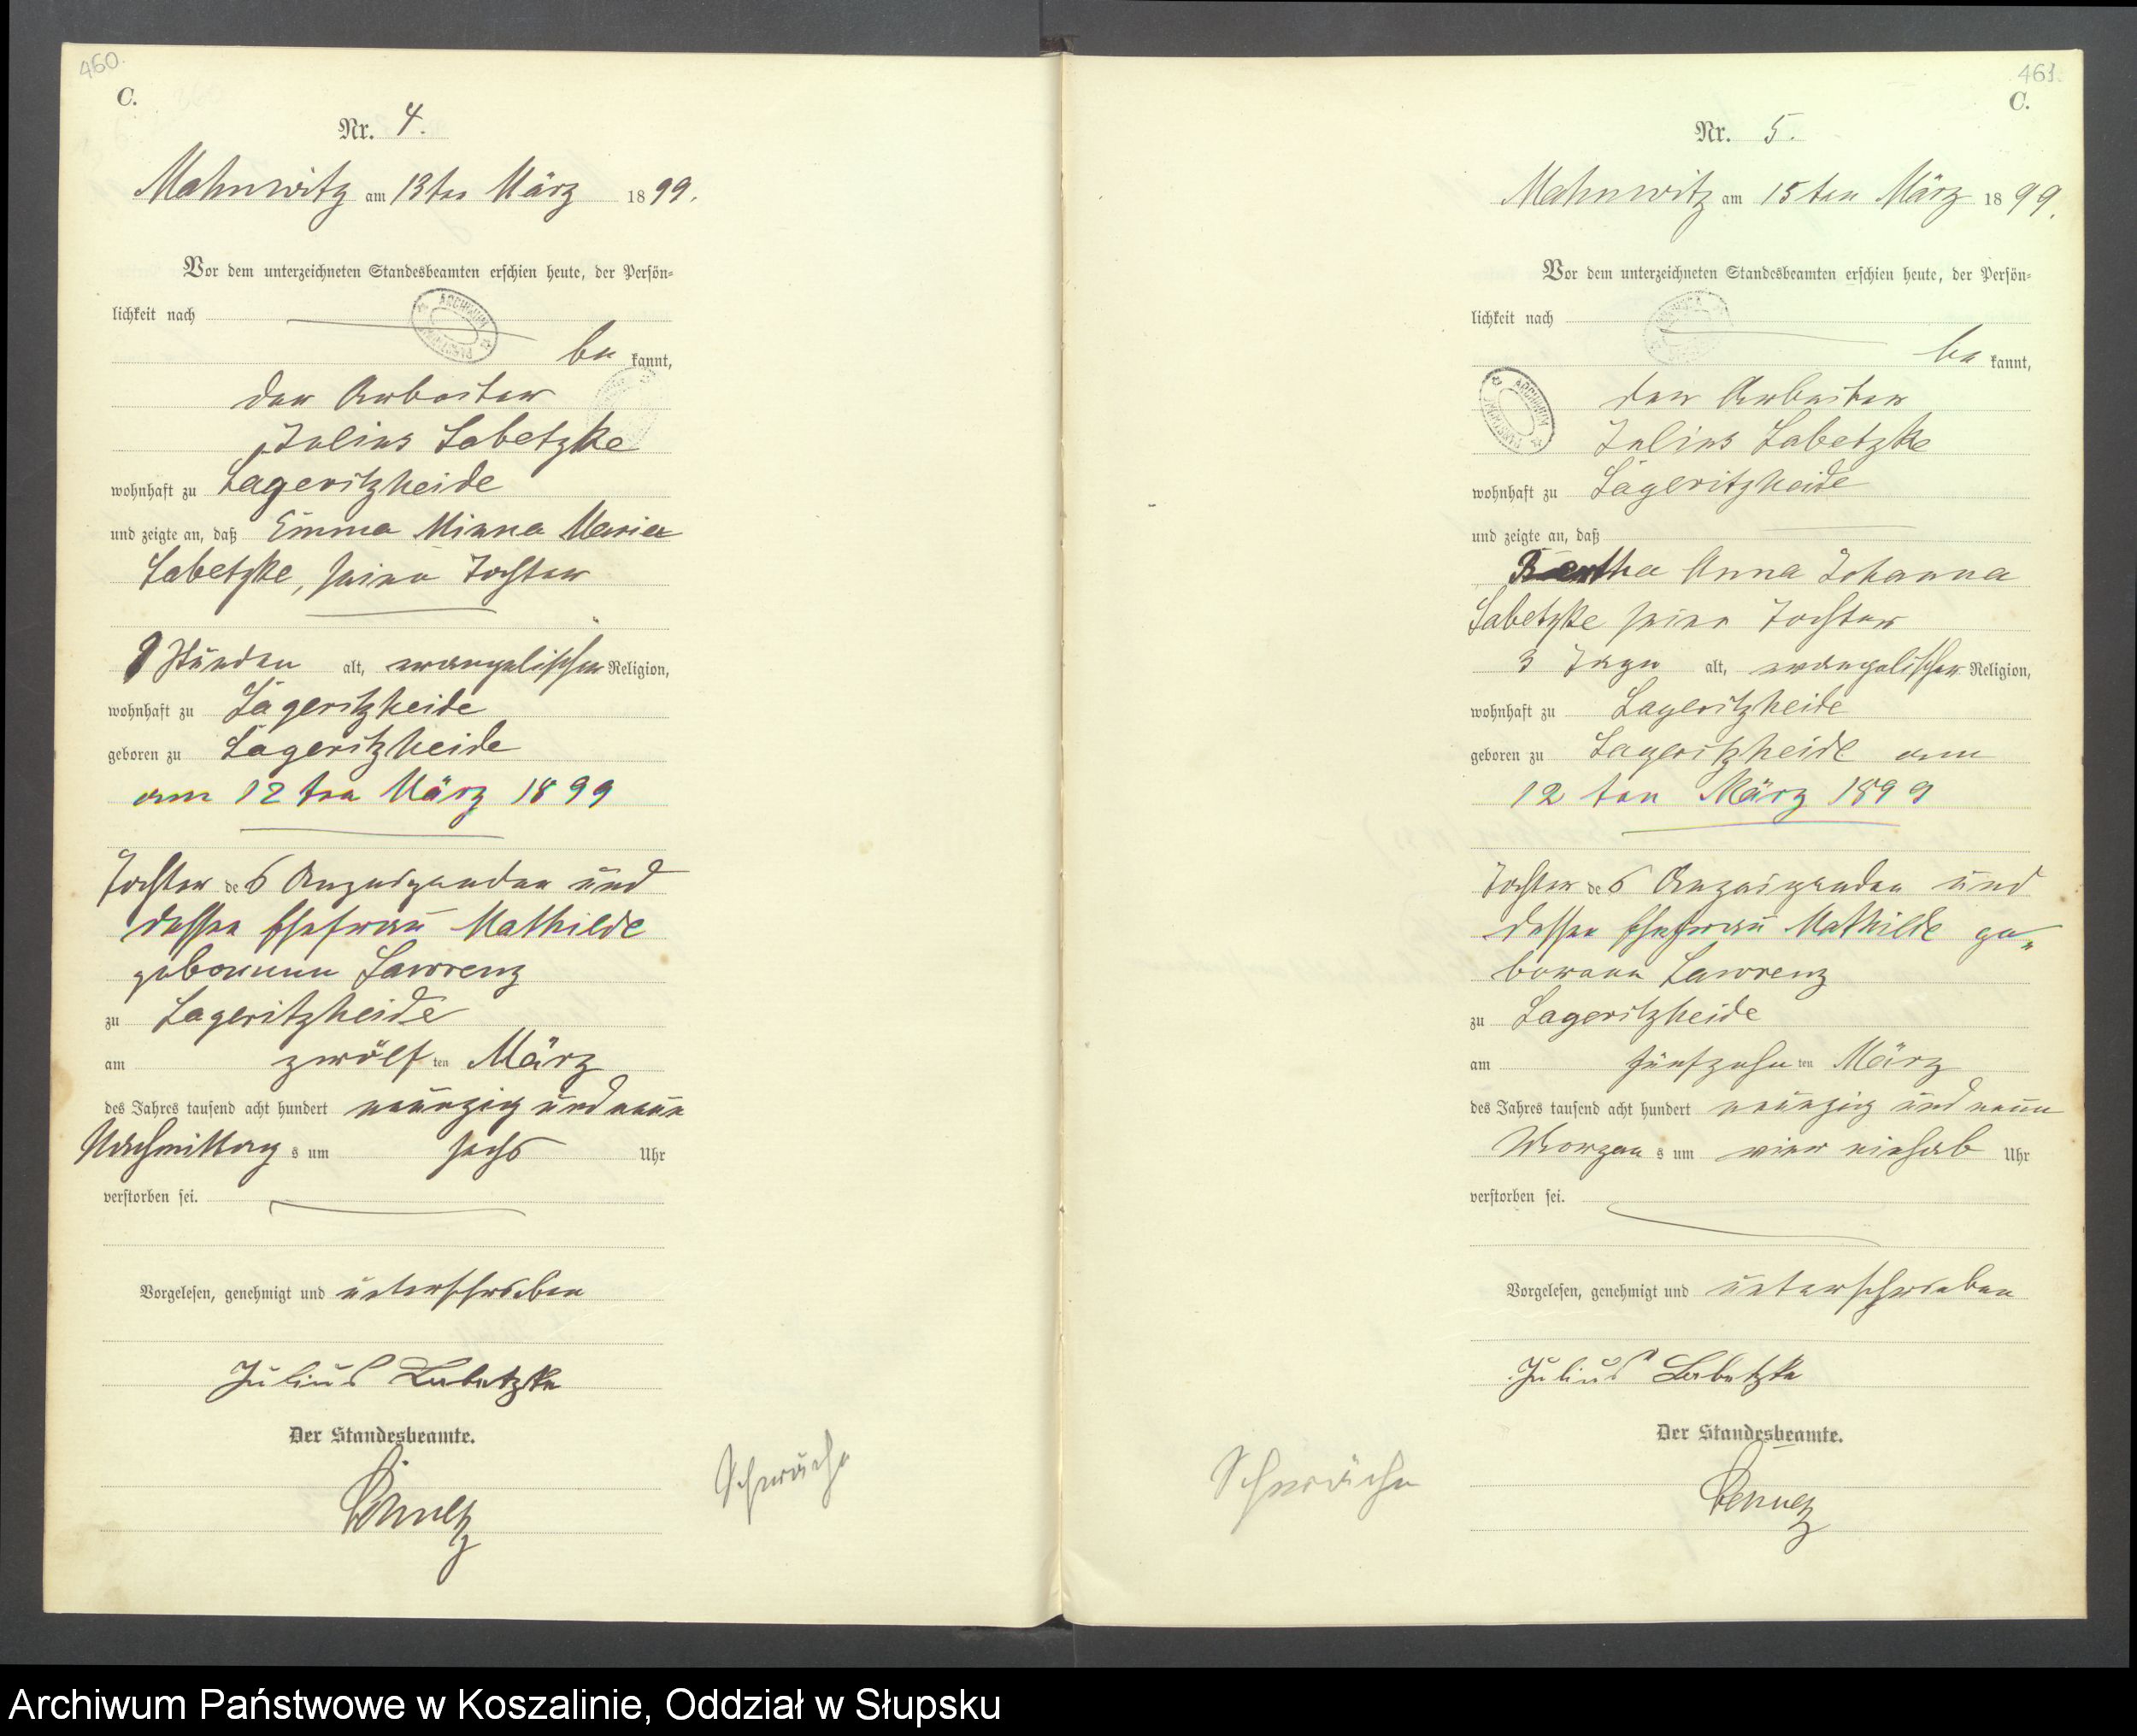 460.
C.
Nr. 4.
Mahnwitz am 13ten März 1899.
Vor dem unterzeichneten Standesbeamten erschien heute, der Persön-
lichkeit nach
be kannt,
der Arbeiter
Julius Labetzke
wohnhaft zu Lageritzheide
und zeigte an, daß Emma Minna Maria
Labetzke, seine Tochter
Stunden alt, evangelischer Religion,
wohnhaft zu Lageritzheide
geboren zu Lageritzheide
am 12ten März 1899
Tochter des Anzeigenden und
dessen Ehefrau Mathilde
geborenen Lawrenz
zu Lageritzheide
am zwölf ten März
des Jahres tausend acht hundert neunzig und neun
Nachmittag s um sechs Uhr
verstorben sei.
Vorgelesen, genehmigt und unterschrieben
Julius Labetzke
Der Standesbeamte.
Schwäche
461.
C.
Nr. 5.
Mahnwitz am 15ten März 1899.
Vor dem unterzeichneten Standesbeamten erschien heute, der Persön-
lichkeit nach
be kannt,
ARCHIWUM PAŃSTWOWE
der Arbeiter
Julius Labetzke
wohnhaft zu Lageritzheide
und zeigte an, daß
Bertha Anna Johanna
Labetzke seine Tochter
3 Tage alt, evangelischer Religion,
wohnhaft zu Lageritzheide
geboren zu Lageritzheide am
12ten März 1899
Tochter des Anzeigenden und
dessen Ehefrau Mathilde ge„
borenen Lawrenz
zu Lageritzheide
am fünfzehn ten März
des Jahres tausend acht hundert neunzig und neun
Morgen s um vier einhalb Uhr
verstorben sei.
Vorgelesen, genehmigt und unterschrieben
Julius Labetzke
Der Standesbeamte.
Schwäche
Archiwum Państwowe w Koszalinie, Oddział w Słupsku